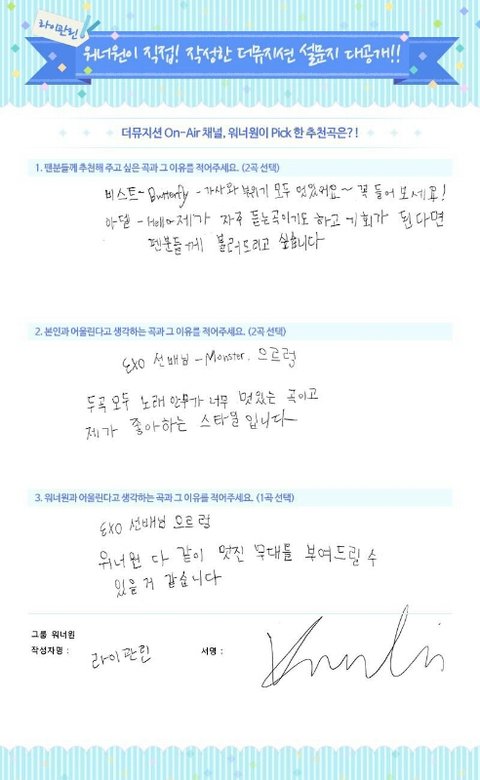 라이관린
워너원이 직접! 작성한 더뮤지션 설문지 대공개!!
더뮤지션 On-Air 채널, 워너원이 Pick 한 추천곡은?!
1. 팬분들께 추천해 주고 싶은 곡과 그 이유를 적어주세요. (2곡 선택)
비스트- Butterfly - 가사와 분위기 모두 멋있어요~ 꼭 들어 보세요!
아델 - Hello 제가 자주 듣는곡이기도 하고 기회가 된다면
팬분들께 불러드리고 싶습니다
2. 본인과 어울린다고 생각하는 곡과 그 이유를 적어주세요. (2곡 선택)
EXO 선배님 - Monster. 으르렁
두곡 모두 노래 안무가 너무 멋있는 곡이고
제가 좋아하는 스타일입니다
3. 워너원과 어울린다고 생각하는 곡과 그 이유를 적어주세요. (1곡 선택)
EXO 선배님 으르렁
워너원 다 같이 멋진 무대를 부여드릴 수
있을거 같습니다
그룹 워너원
작성자명 : 라이관린 서명 :